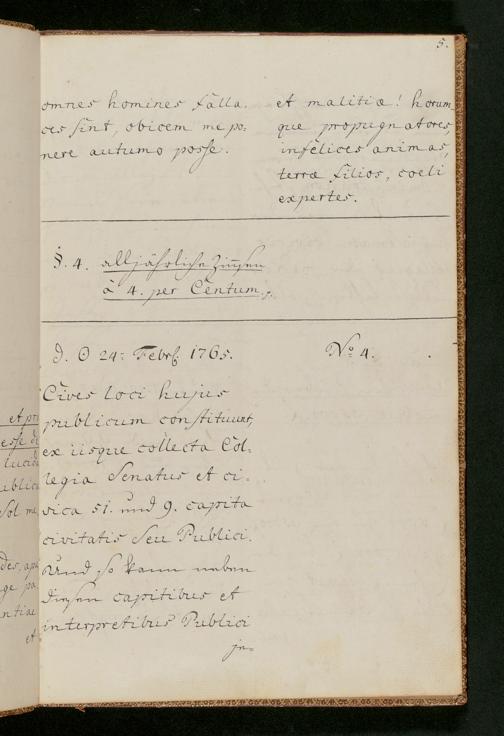 5.
omnes homines falla-
ces sint, obicem me po-
nere autumo posse.
et malitiæ! horum
que propugnatores,
infelices animas,
terræ filios, coeli
expertes.
§. 4. alljährliche Zinsen
à 4. per Centum.
d. ☉ 24: Febr. 1765.
No 4.
Cives loci hujus
publicum constituunt,
ex iisque collecta Col-
legia Senatus et ci-
vica 51. und 9. capita
civitatis seu Publici.
Und so kann neben
diesen capitibus et
interpretibus Publici
je-
et pri
esse de
lucid
ublic
Sol me
des, apu
ge pa
ntiæ
et